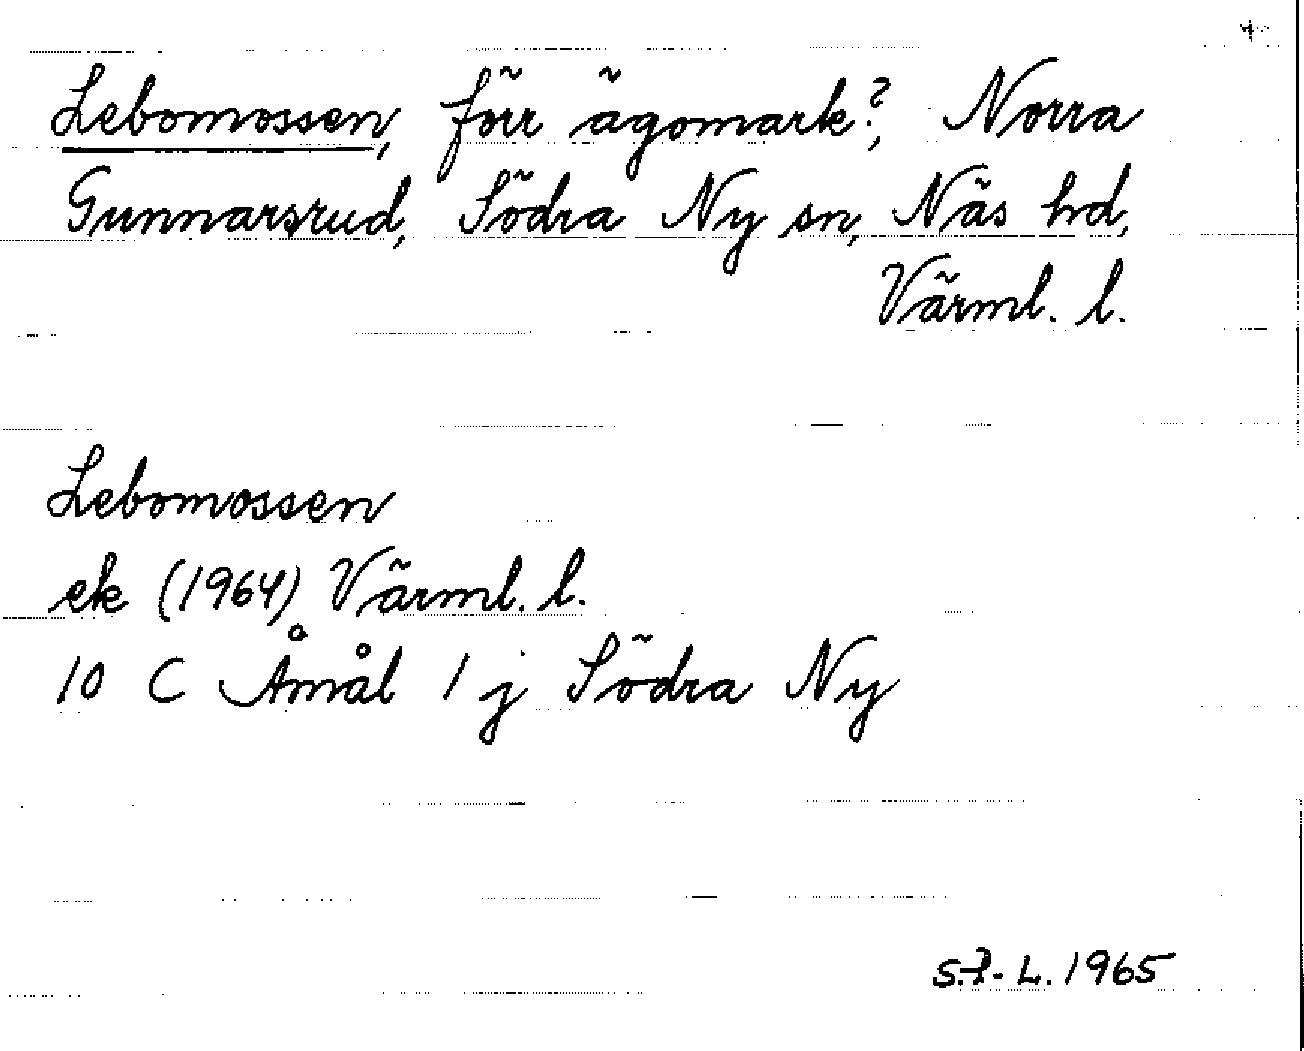 Lebomossen, förr ägomark?, Norra
Gunnarsrud, Södra Ny sn, Näs hd,
Värml. l.
Lebomossen
ek (1964) Värml. l.
10 C Åmål 1 j Södra Ny
L. 1965